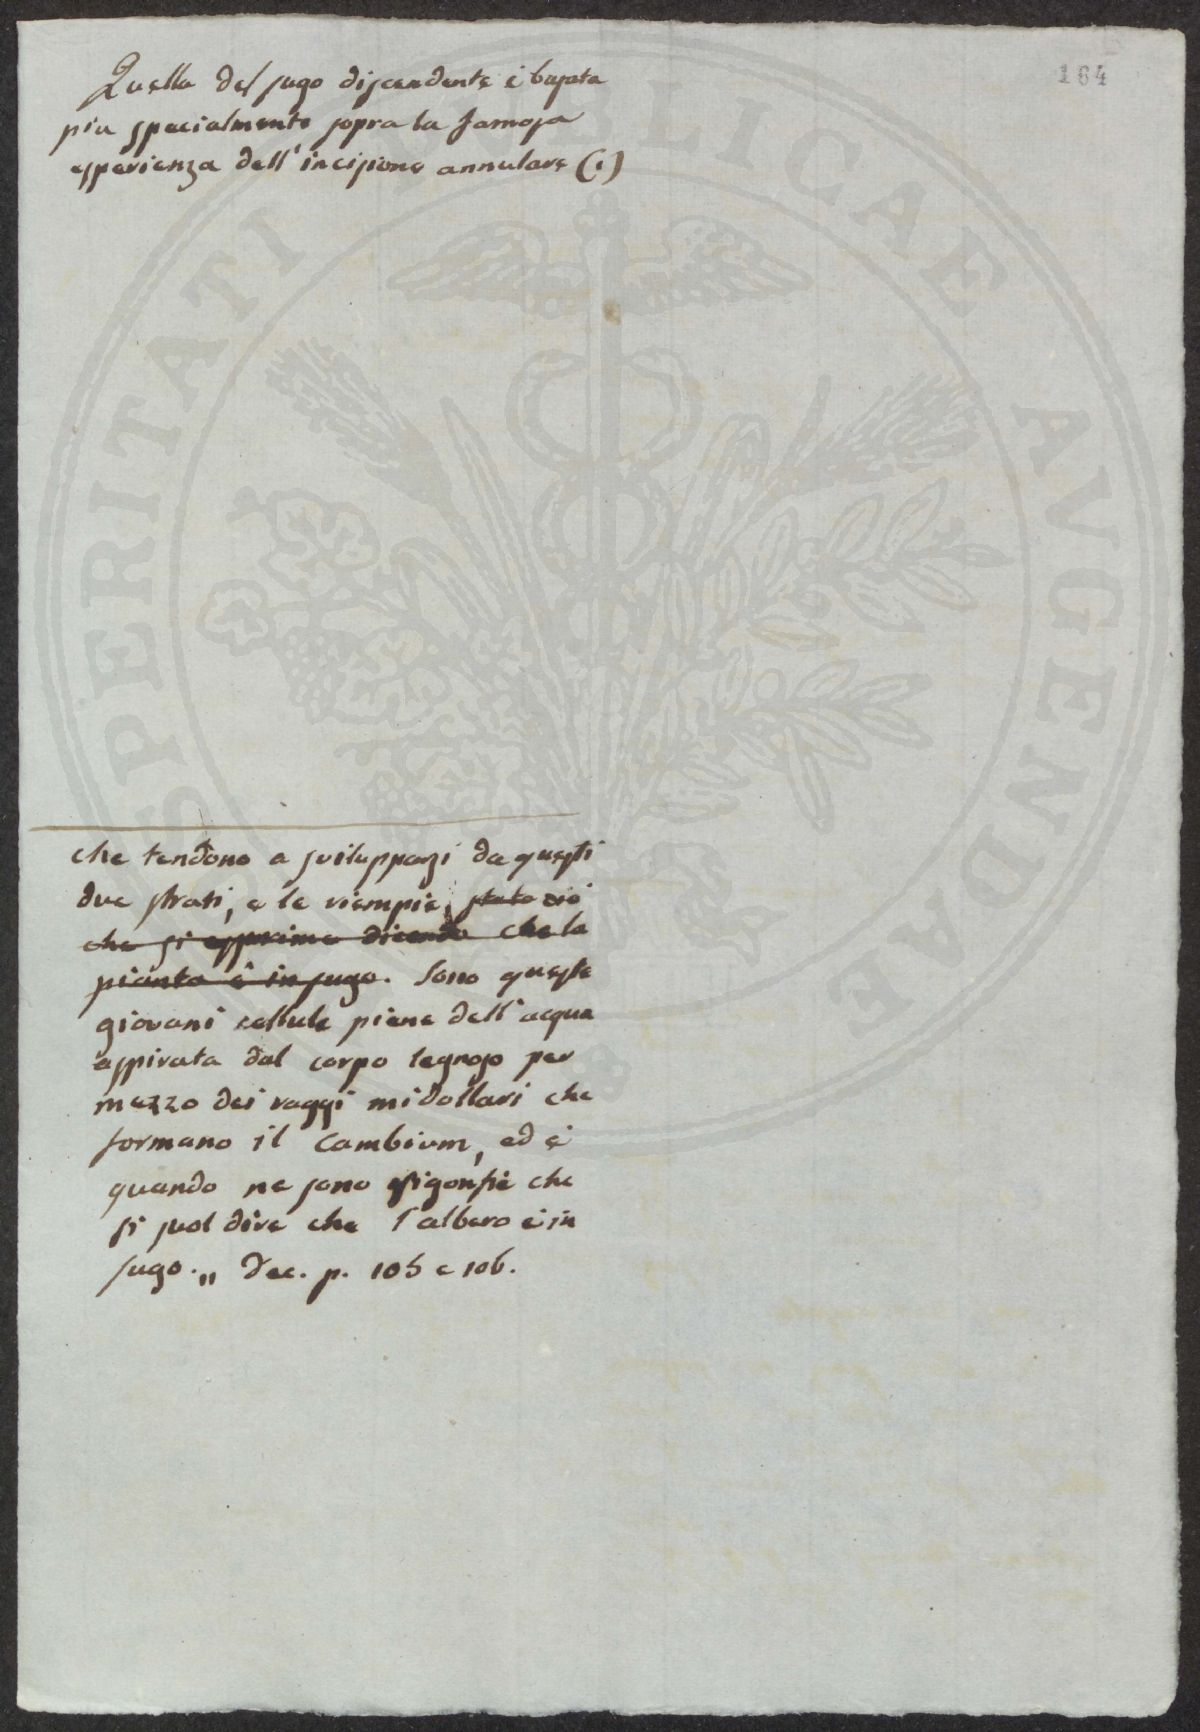 164
Quella del sugo discendente è basata
piu specialmente sopra la famosa
esperienza dell'incisione annulare (1)
che tendono a svilupparsi da questi
due strati, e le riempie, stato ciò
che si esprime dicendo che la
pianta è in sugo. Sono queste
giovani cellule piene dell'acqua
aspirata dal corpo legnoso per
mezzo dei raggi midollari che
formano il Cambium, ed è
quando ne sono rigonfie che
si suol dire che l'albero è in
sugo.„ Dec. p. 105 e 106.
PERITATI PUBLICAE AVGENDAE